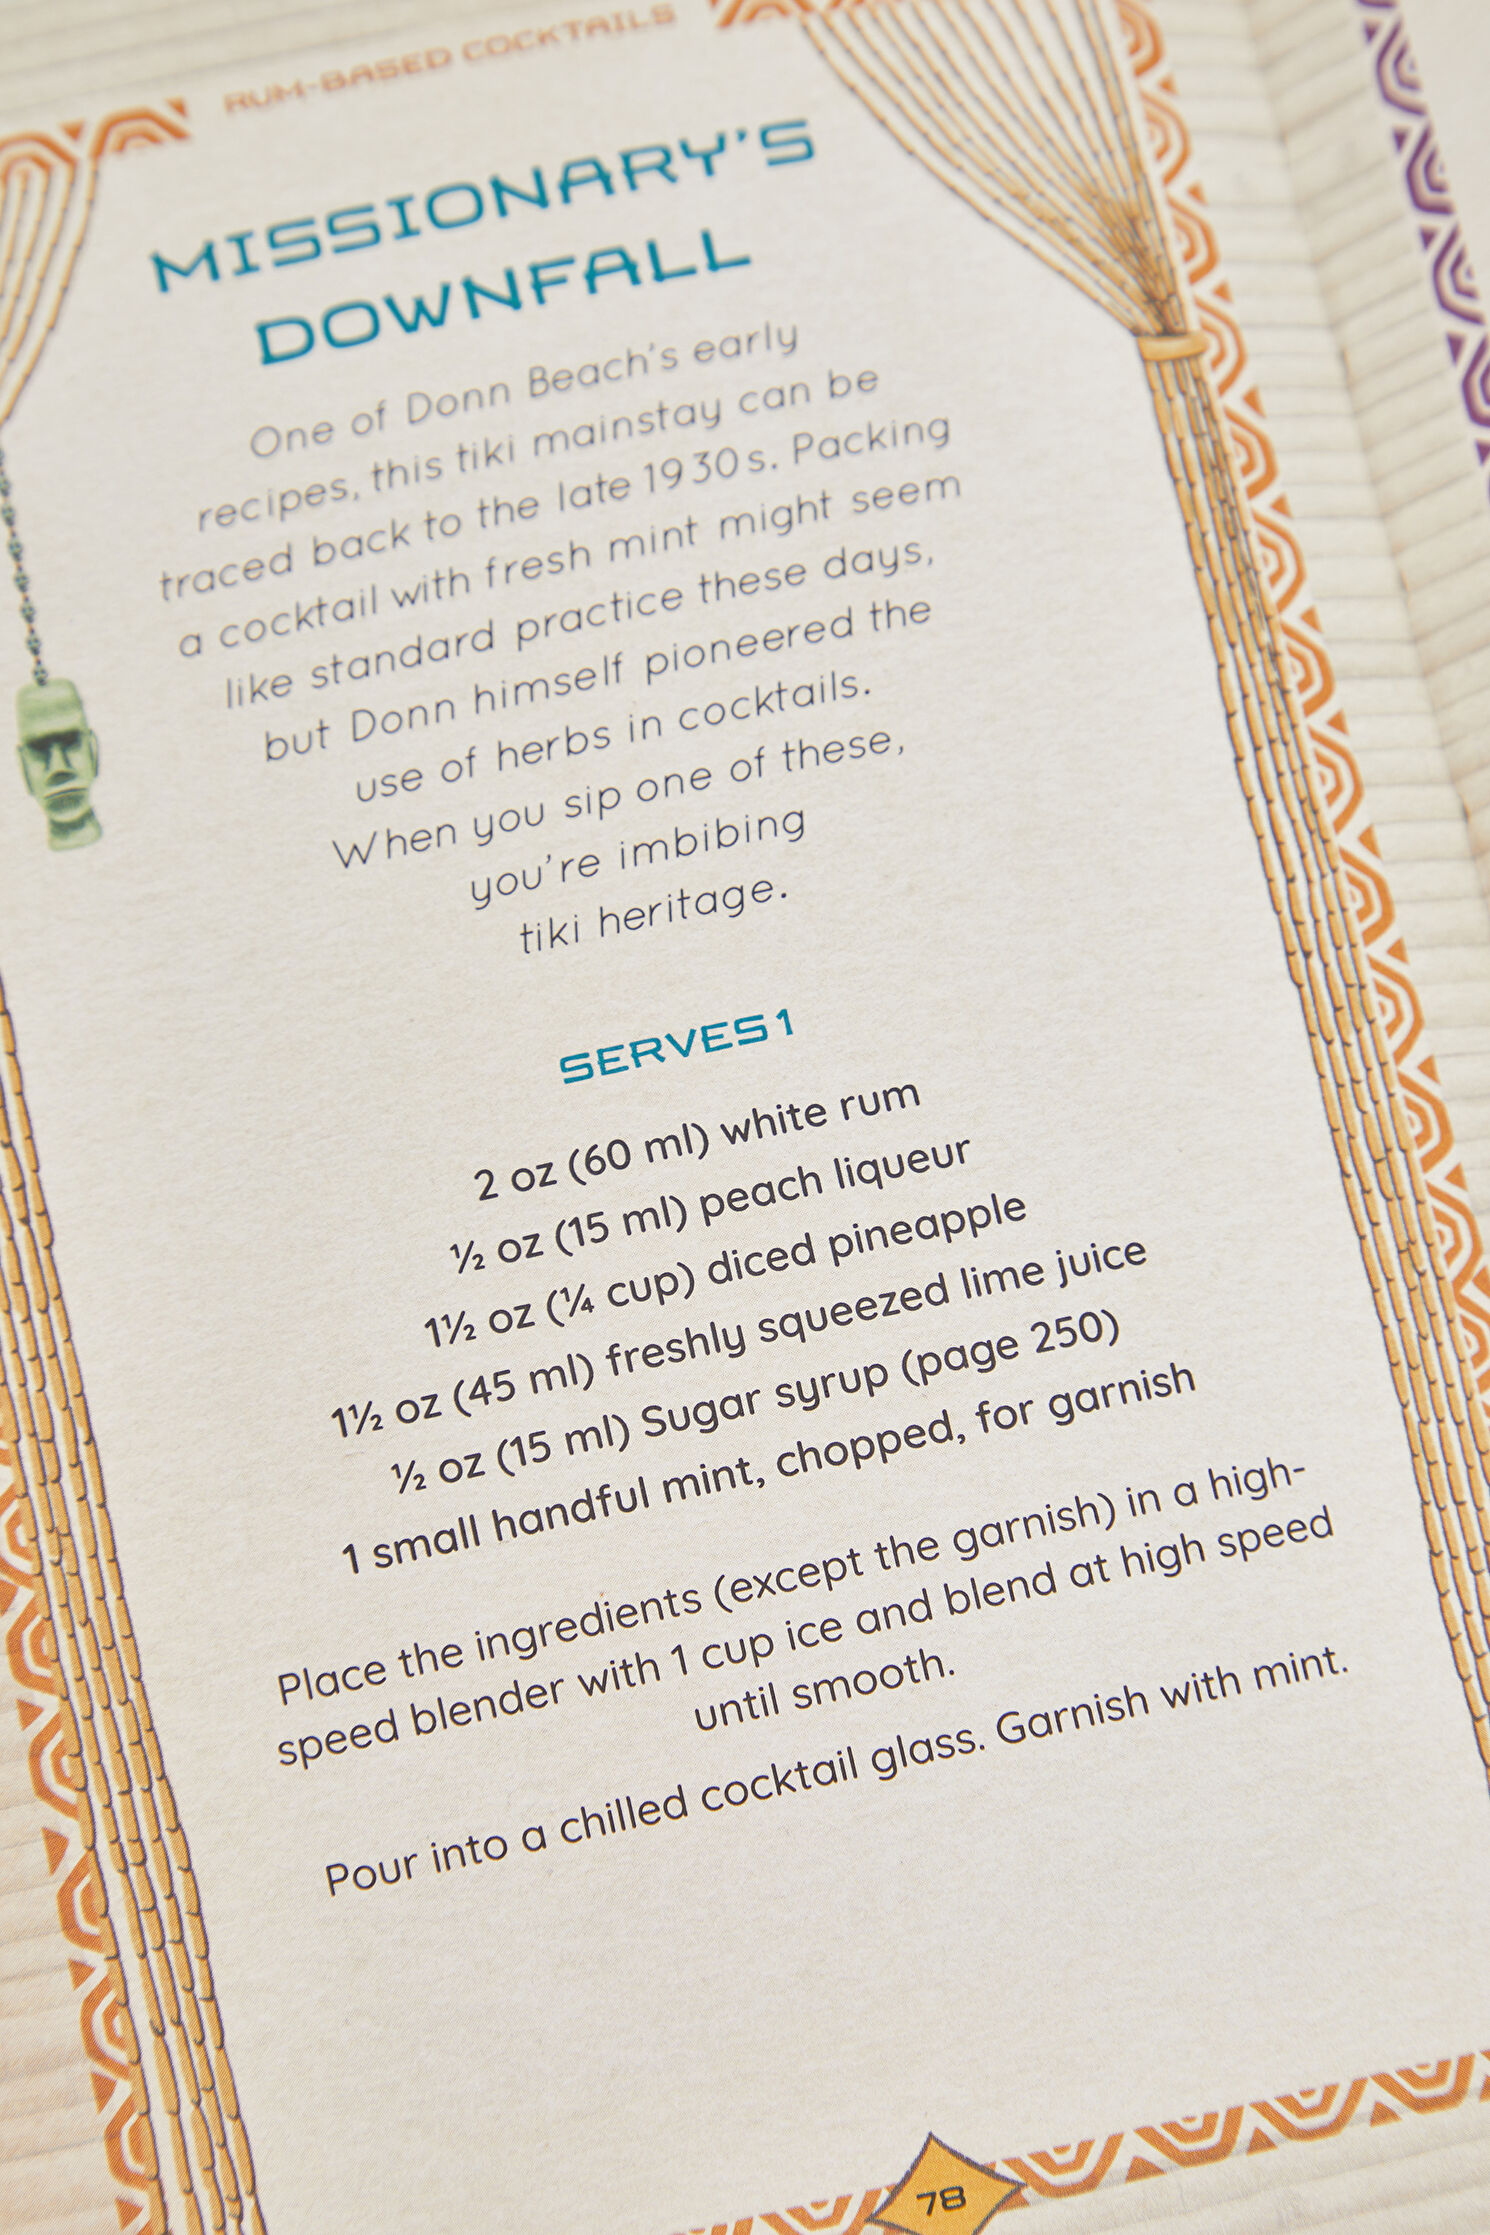 RUM-BASED COCKTAILS
MISSIONARY'S
DOWNFALL
One of Donn Beach's early
recipes, this tiki mainstay can be
traced back to the late 1930s. Packing
a cocktail with fresh mint might seem
like standard practice these days,
but Donn himself pioneered the
use of herbs in cocktails.
When you sip one of these,
you're imbibing
tiki heritage.
SERVES 1
2 oz (60 ml) white rum
½ oz (15 ml) peach liqueur
1½ oz (¼ cup) diced pineapple
1½ oz (45 ml) freshly squeezed lime juice
½ oz (15 ml) Sugar syrup (page 250)
1 small handful mint, chopped, for garnish
Place the ingredients (except the garnish) in a high-
speed blender with 1 cup ice and blend at high speed
until smooth.
Pour into a chilled cocktail glass. Garnish with mint.
78